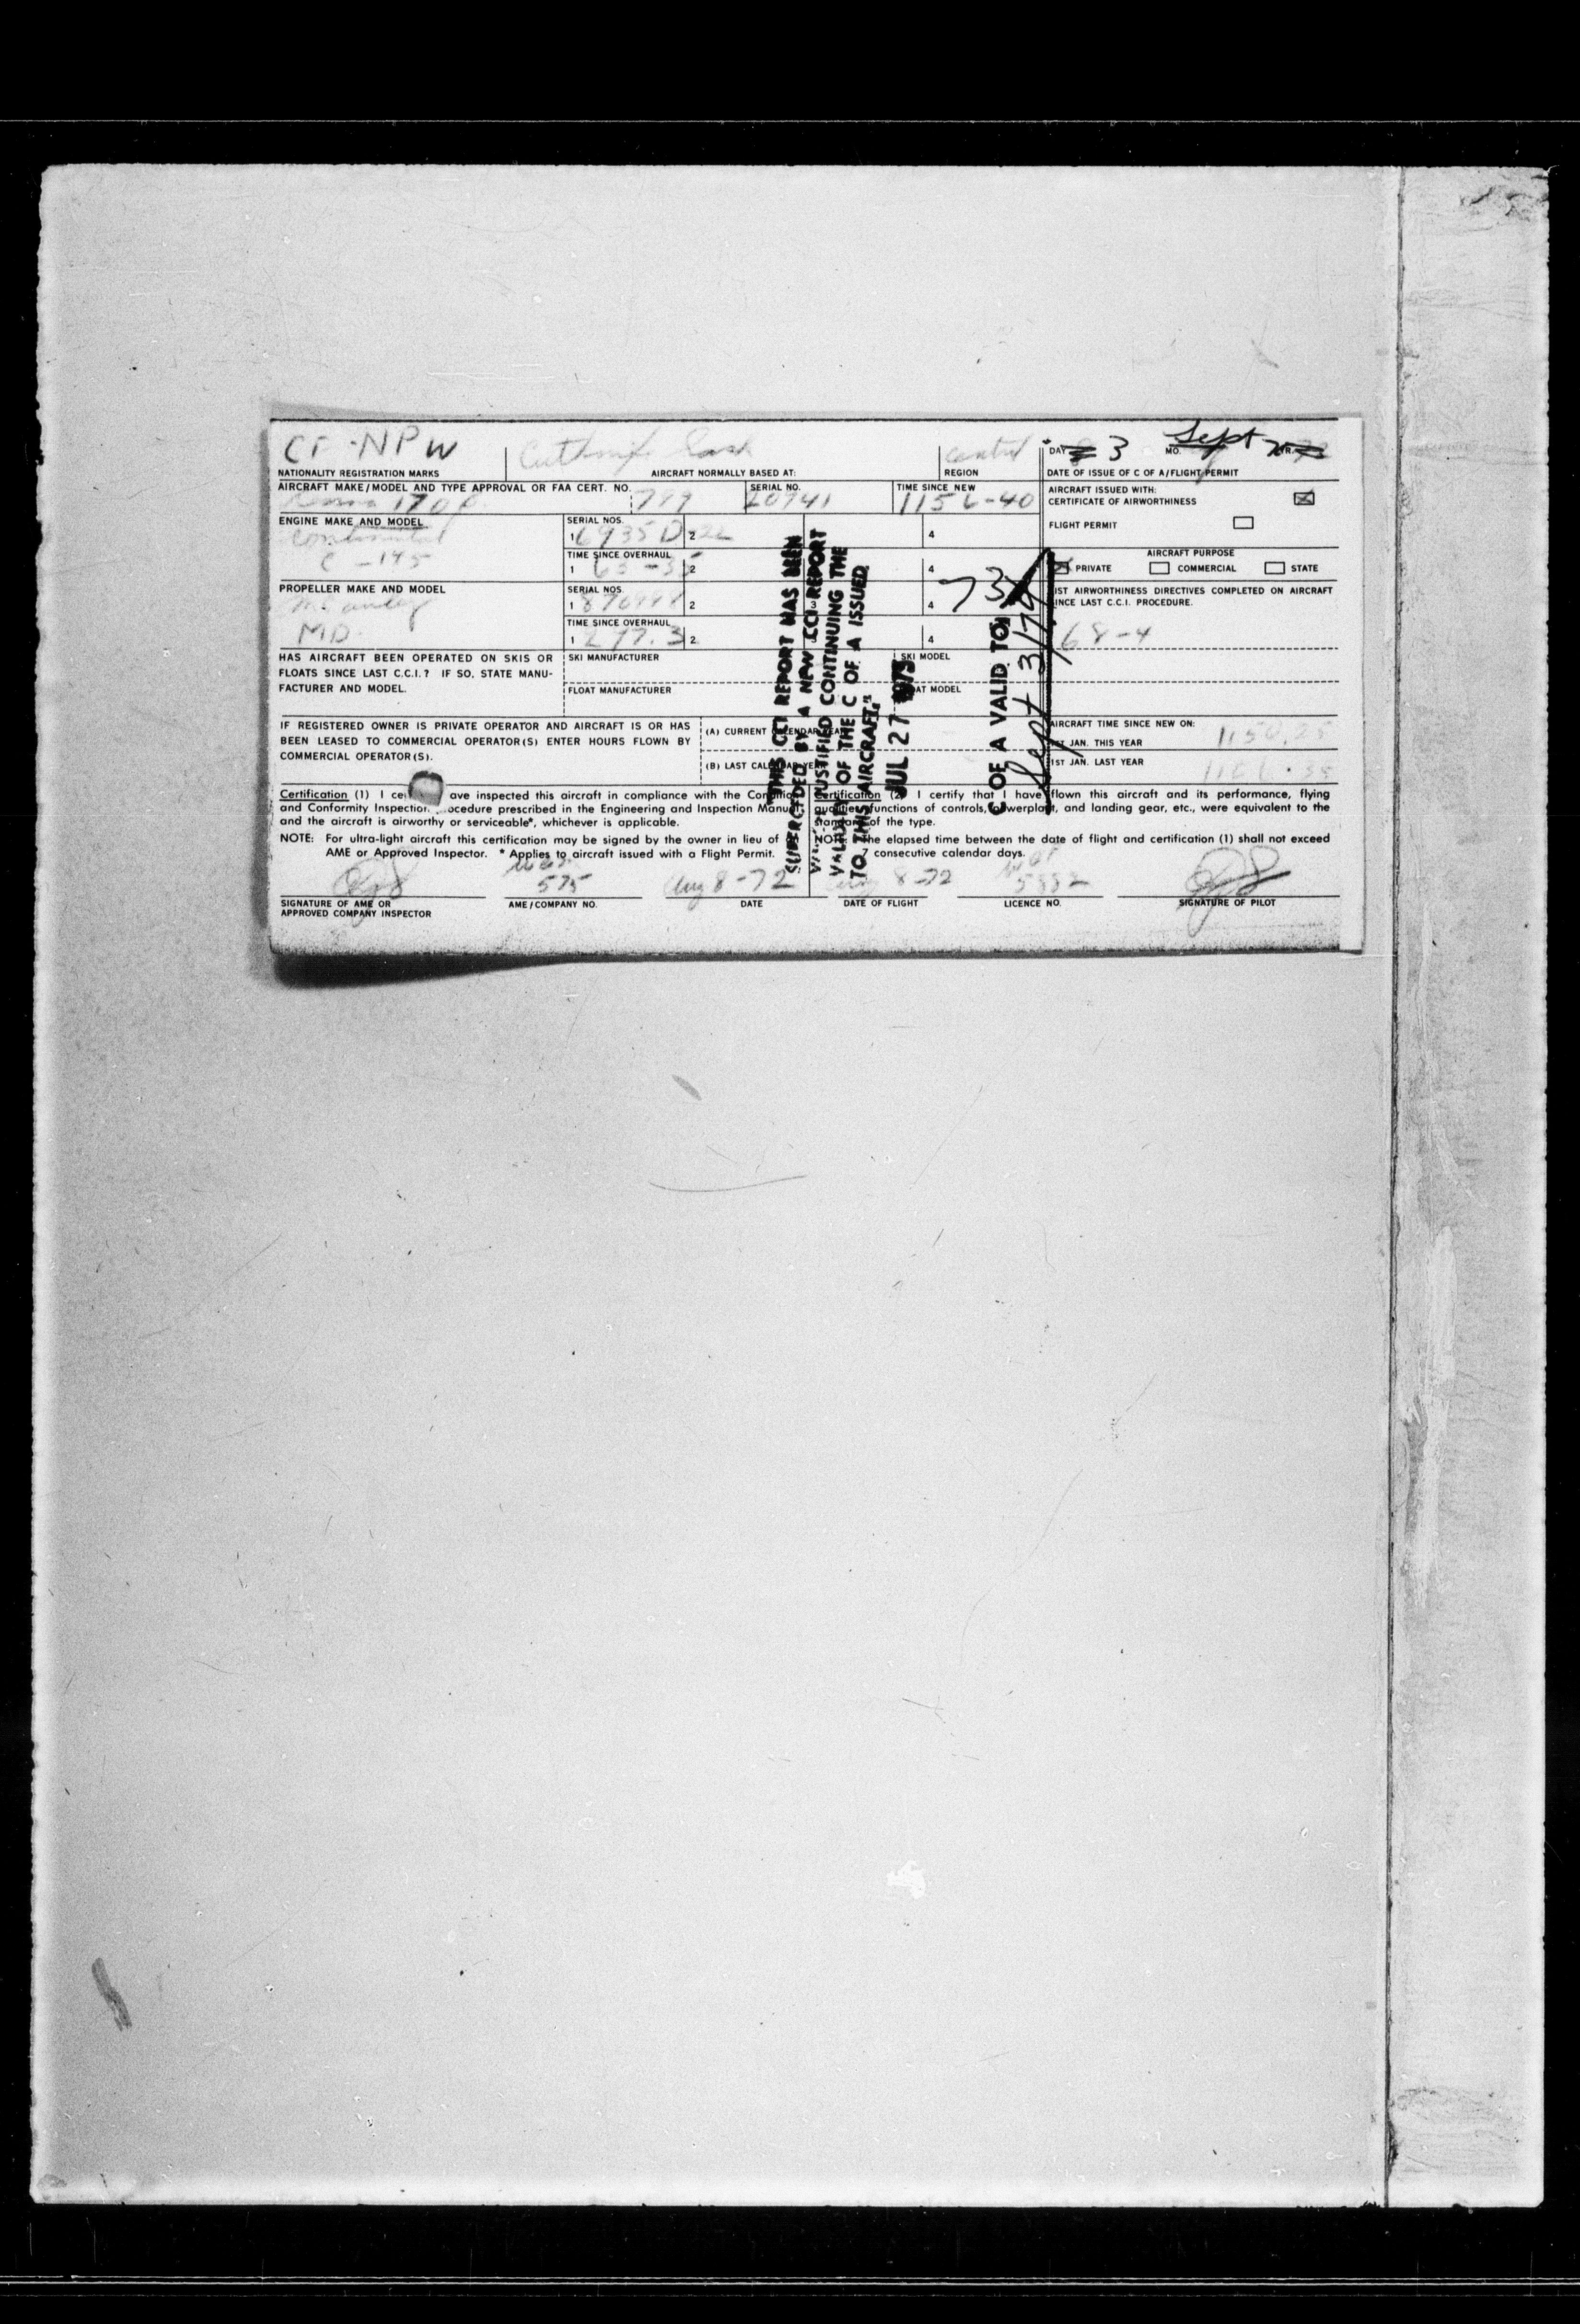 CF-NPW
NATIONALITY REGISTRATION MARKS
Sask
AIRCRAFT NORMALLY BASED AT:
central
REGION
DAY 3 MO. Sept YR.
DATE OF ISSUE OF C OF A/FLIGHT PERMIT
AIRCRAFT MAKE/MODEL AND TYPE APPROVAL OR FAA CERT. NO.
170 799
SERIAL NO.
20941
TIME SINCE NEW
1156-40
AIRCRAFT ISSUED WITH:
CERTIFICATE OF AIRWORTHINESS
FLIGHT PERMIT
ENGINE MAKE AND MODEL
Continental
C-145
SERIAL NOS.
1 6935D 2 4
TIME SINCE OVERHAUL
1 63-35 2 4
AIRCRAFT PURPOSE
PRIVATE COMMERCIAL STATE
PROPELLER MAKE AND MODEL
McCauley
MD
SERIAL NOS.
1 2 3 4
TIME SINCE OVERHAUL
1 277.3 2 4
LIST AIRWORTHINESS DIRECTIVES COMPLETED ON AIRCRAFT
SINCE LAST C.C.I. PROCEDURE.
68-4
HAS AIRCRAFT BEEN OPERATED ON SKIS OR
FLOATS SINCE LAST C.C.I.? IF SO, STATE MANU-
FACTURER AND MODEL.
SKI MANUFACTURER
SKI MODEL
FLOAT MANUFACTURER
FLOAT MODEL
IF REGISTERED OWNER IS PRIVATE OPERATOR AND AIRCRAFT IS OR HAS
BEEN LEASED TO COMMERCIAL OPERATOR(S) ENTER HOURS FLOWN BY
COMMERCIAL OPERATOR(S).
(A) CURRENT CALENDAR YEAR
(B) LAST CALENDAR YEAR
AIRCRAFT TIME SINCE NEW ON:
1ST JAN. THIS YEAR 1150.25
1ST JAN. LAST YEAR
Certification (1) I ce ave inspected this aircraft in compliance with the Condition
and Conformity Inspection ocedure prescribed in the Engineering and Inspection Manual
and the aircraft is airworthy or serviceable*, whichever is applicable.
NOTE: For ultra-light aircraft this certification may be signed by the owner in lieu of
AME or Approved Inspector. * Applies to aircraft issued with a Flight Permit.
575
Aug 8-72
SIGNATURE OF AME OR
APPROVED COMPANY INSPECTOR
AME/COMPANY NO.
DATE
Certification (2) I certify that I have flown this aircraft and its performance, flying
qualities, functions of controls, powerplant, and landing gear, etc., were equivalent to the
standard of the type.
NOTE: The elapsed time between the date of flight and certification (1) shall not exceed
7 consecutive calendar days.
Aug 8-72
DATE OF FLIGHT
LICENCE NO.
SIGNATURE OF PILOT
"THIS CCI REPORT HAS BEEN
SUPERCEDED BY A NEW CCI REPORT
JUSTIFIED CONTINUING THE
VALIDITY OF THE C OF A ISSUED
TO THIS AIRCRAFT."
JUL 27 1973
C OF A VALID TO:
Sept 3/74
73